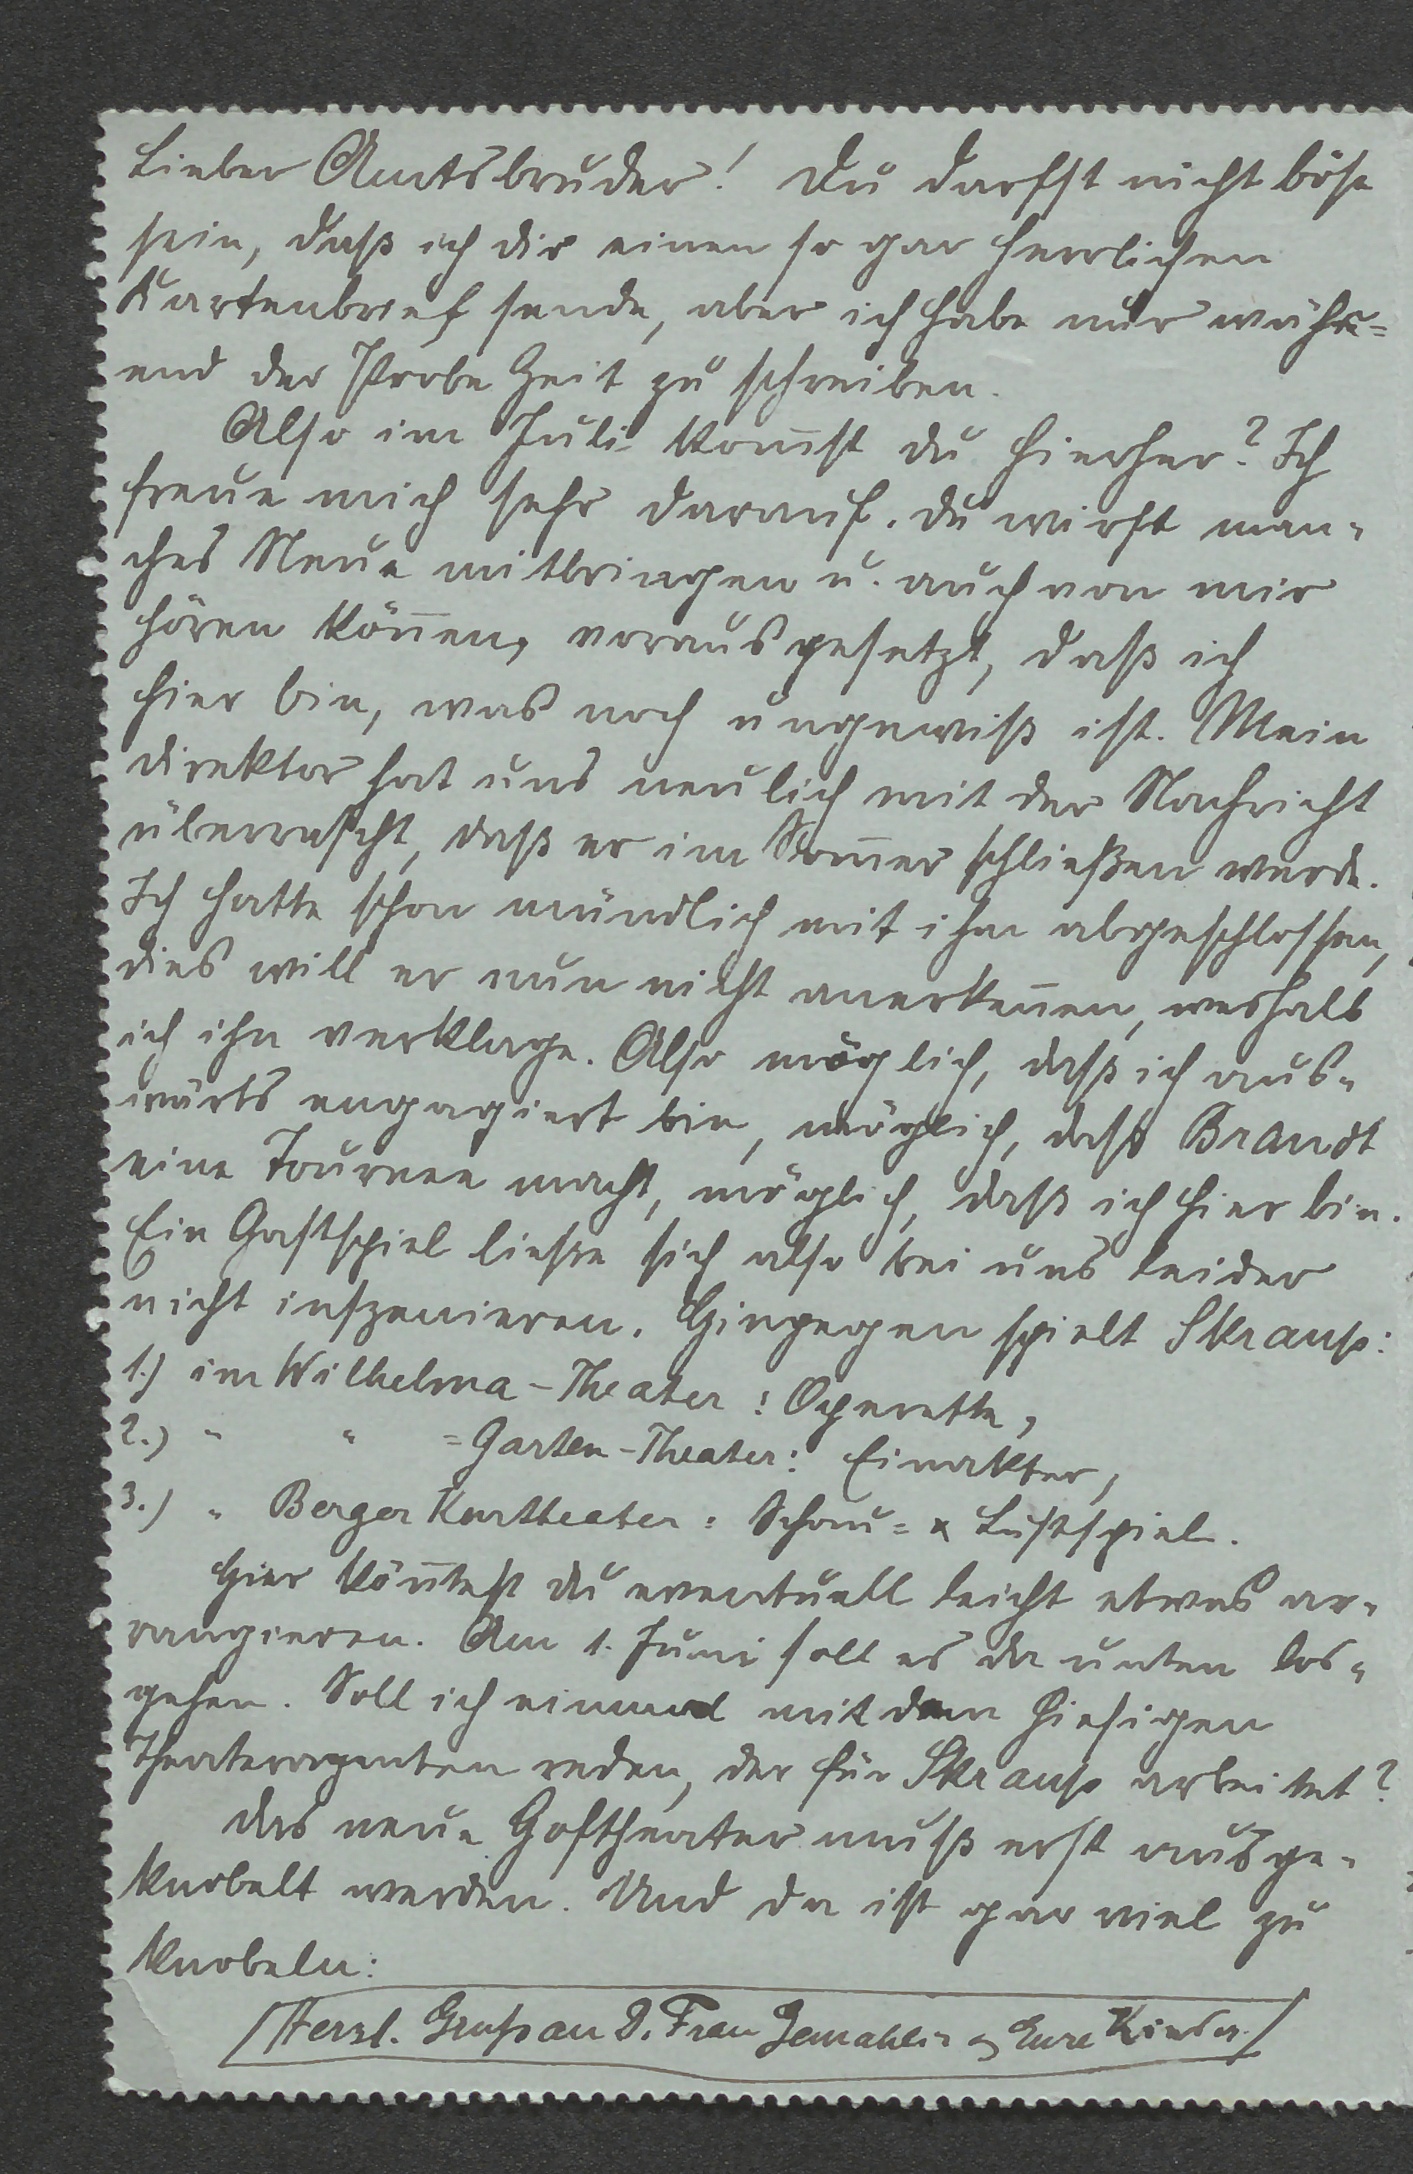 Lieber Amtsbruder! Du darfst nicht böse
sein, daß ich dir einen so gar herrlichen
Kartenbrief sende, aber ich habe nur währ=
end der Probe Zeit zu schreiben.
Also im Juli kom̅st du hierher? Ich
freue mich sehr darauf. Du wirst man-
ches Neue mitbringen u. auch von mir
hören kön̅en, vorausgesetzt, daß ich
hier bin, was noch ungewiß ist. Mein
Direktor hat uns neulich mit der Nachricht
überrascht, daß er im Som̅er schließen werde.
Ich hatte schon mündlich mit ihm abgeschlossen,
dies will er nun nicht anerken̅en, weshalb
ich ihn verklage. Also möglich, daß ich aus-
wärts engagiert bin, möglich, daß Brandt
eine Tournee macht, möglich, daß ich hier bin.
Ein Gastspiel ließe sich also bei uns leider
nicht inszenieren. Hingegen spielt Skrauß:
1.) im Wilhelma-Theater: Operette,
2.) " " =Garten-Theater: Einakter,
3.) " Berger Kurtheater: Schau= & Lustspiel.
Hier kön̅test du eventuell leicht etwas ar-
rangieren. Am 1. Juni soll es da unten los-
gehen. Soll ich einmal mit dem hiesigen
Theateragenten reden, der für Skrauß arbeitet?
Das neue Hoftheater muß erst ausge-
knobelt werden. Und da ist gar viel zu
knobeln:
Herzl. Gruß an D. Frau Gemahlin & Eure Kinder.